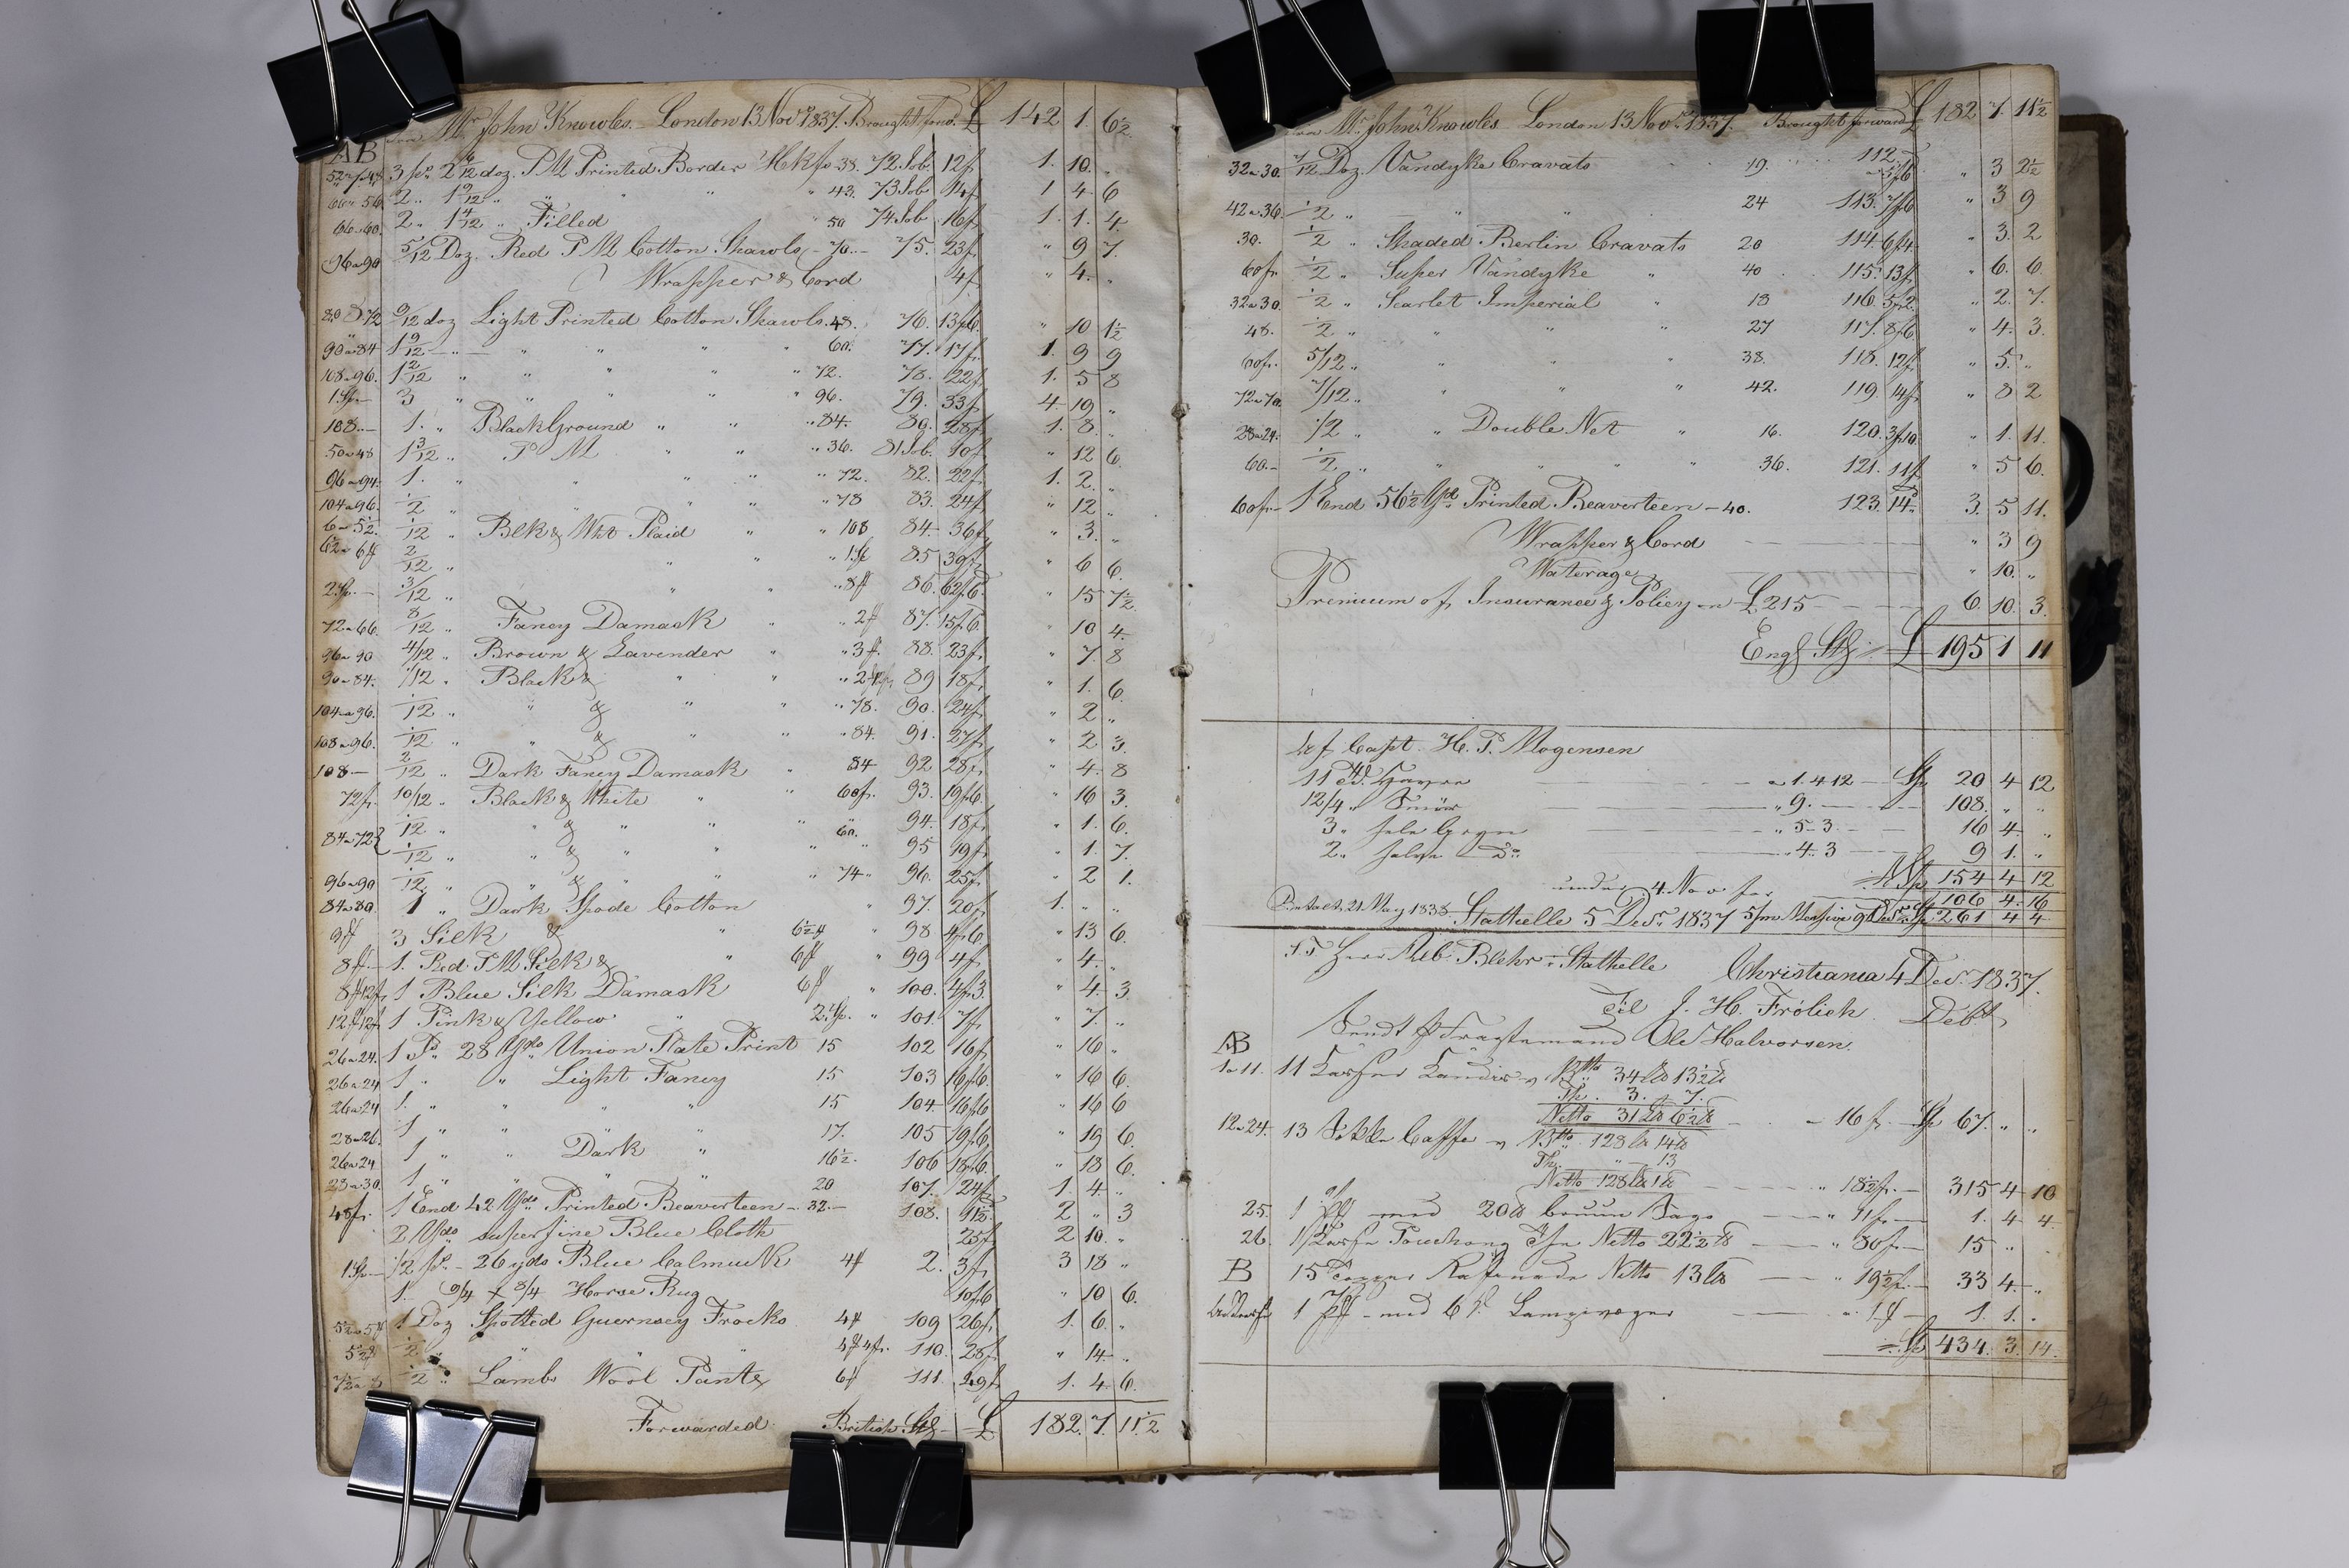 Mr. John Knowles London 13 Nov 1837. Brought forwd. £ 142 1. 6½
AB
52 a 48 3 ps. 2 6/12 doz. P M Printed Border Hkfs 38. 72 Job 12f 1. 10. "
60 a 56 2 " 1 9/12 " " " " 43. 73 Job 14f 1 4 6
66 a 60 2 " 1 4/12 " Filled " 50 74 Job 16f 1. 1. 4
96 a 90 5/12 Doz. Red P M Cotton Shawls 70 75. 23f " 9 7.
Wrapper & Cord 4f " 4. "
80 a 72 9/12 doz Light Printed Cotton Shawls 48. 76. 13f6 " 10 1½
90 a 84 1 9/12 " " " " 60. 77. 17f 1. 9 9
108 a 96. 1 2/12 " " " " " 72. 78. 22f 1. 5 8
3 " " " " " 96. 79. 33f 4. 19 "
108 1. " Black Ground " " " 84. 80. 28f 1. 8. "
50 a 48 1 3/12 " P M " " " 36. 81 Job. 10f " 12 6
96 a 94. 1. " " " " " 72. 82. 22f 1. 2. "
104 a 96. ½ " " " " " 78 83. 24f " 12 "
6 a 5½. 1/12 " Blk & Wht Plaid " " 108 84. 36f " 3. "
2/12 " " " 85 39f " 6 6.
3/12 " " " 86. 62f6 " 15 7½.
72 a 66. 8/12 " Fancy Damask " 87. 15f6. " 10 4.
96 a 90 4/12 " Brown & Lavender " 88. 23f " 7. 8
90 a 84. 1/12 " Black & " " 89 18f " 1. 6.
104 a 96. 1/12 " " & " " " 78. 90. 24f " 2 "
108 a 96. 1/12 " " & " " " 84. 91. 27f " 2 3.
108 2/12 " Dark Fancy Damask " 84 92 28f " 4. 8
72f. 10/12 " Black & White " " 60f. 93. 19f6. " 16 3.
84 a 72 1/12 " " & " " " 60. 94. 18f " 1. 6.
1/12 " " & " " " " 95 19f " 1. 7.
96 a 90 1/12 " " & " " " 74 96. 25f " 2 1.
84 a 80. 1 " Dark Spade Cotton " 97. 20f 1. " "
3 Silk & " " 98 4f6 " 13 6.
1. Red P M Silk & " " 99 4f " 4. "
1 Blue Silk Damask " 100. 4f3. " 4. 3
1 Pink & Yellow " " 101. 7f " 7. "
26 a 24. 1 Ps. 28 Yds Union Plate Print 15 102 16f " 16 "
26 a 24 1 " " Light Fancy 15 103 16f6. " 16 6.
26 a 24 1. " " " " 15 104 16f6 " 16 6
28 a 26. 1 " " " " 17. 105 19f6. " 19 6.
26 a 24. 1 " " Dark " 16½. 106 18f6. " 18 6.
1 " " " " 20 107. 24f 1. 4 "
48f. 1 End 42 Yds Printed Beaverteen 32. 108. 11½. 2 " 3
2 Yds superfine Blue Cloth 25f 2 10. "
½ ps. 26 yds Blue Calmuck 2. 3f 3 18 "
1. 9/4 x 8/4 Horse Rug 10f6 " 10 6.
1 Doz Spotted Guernsey Frocks 109 26f. 1. 6. "
½ " " " 110. 28f. " 14 "
½ " Lambs Wool Pants 111. 49f 1. 4. 6.
Forwarded British Stg £ 182. 7. 11½
Mr. John Knowles London 13 Nov. 1837. Brought forward £ 182 7. 11½
32 a 30. 7/12 Doz Vandyke Cravats 19. 112 5f6 " 3 2½
42 a 36. ½ " " " 24 113. 7f6 " 3 9
30. ½ " Shaded Berlin Cravats 20 114. 6f4 " 3. 2
60f. ½ " Super Vandyke " 40 115. 13f. " 6. 6.
32 a 30. ½ " Scarlet Imperial " 18 116. 5f2. " 2. 7.
48. ½ " " " " 27 117. 8f6 " 4. 3.
60f. 5/12 " " " " 38. 118. 12f " 5. "
72 a 70. 7/12 " " " " 42. 119 14f " 8 2
28 a 24. ½ " " Double Net " 16. 120. 3f10. " 1. 11.
60. ½ " " " " " 36. 121. 11f " 5 6.
60f. 1 End 56½ Yds Printed Beaverteen 40. 123. 14. 3. 5 11.
Wrapper & Cord " 3 9
Waterage " 10. "
Premium of Insurance & Policy on £215 6. 10. 3.
Engl. Stg: £ 195 1 11
Capt. H. P. Mogensen
11 a 1. 4 12 Sp 20 4 12
12/4 " Smør " 9. 108. " "
3 " " 5 3. 16 4 "
2 " halve Do " 4. 3 9 1. "
Sp 154 4 12
under 4 Nov for 106 4. 16
Betalt 21 May 1838. Stathelle 5 Decr. 1837 Sp 261 4 4
Herr Blehr Stathelle Christiania 4 Dec. 1837.
Til J. H. Frölich Debt.
Sendt p Fragtemand Ole Halvorsen.
AB
1 a 11. 11 Kasser Kandis Btto 34 13½
Th. 3. 7.
Netto 31 6½ 16f. Sp 67. " "
12 a 24. 13 Sække Caffe Btto 128 14
Th. " 13
Netto 128 1 " 18½f. 315 4 10
25. 1 med 20 bruun Sago " 11f. 1. 4 4.
26. 1 Kasse Netto 22½ " 80f. 15 " "
B 15 Toppe Rafinade Netto 13 " 19½f. 33 4 "
1 med 6 1. 1. "
Sp 434. 3. 14.